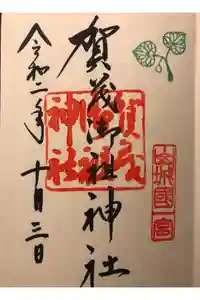 山城國一宮
賀茂御祖神社
賀茂
御祖
神社
令和二年十月三日